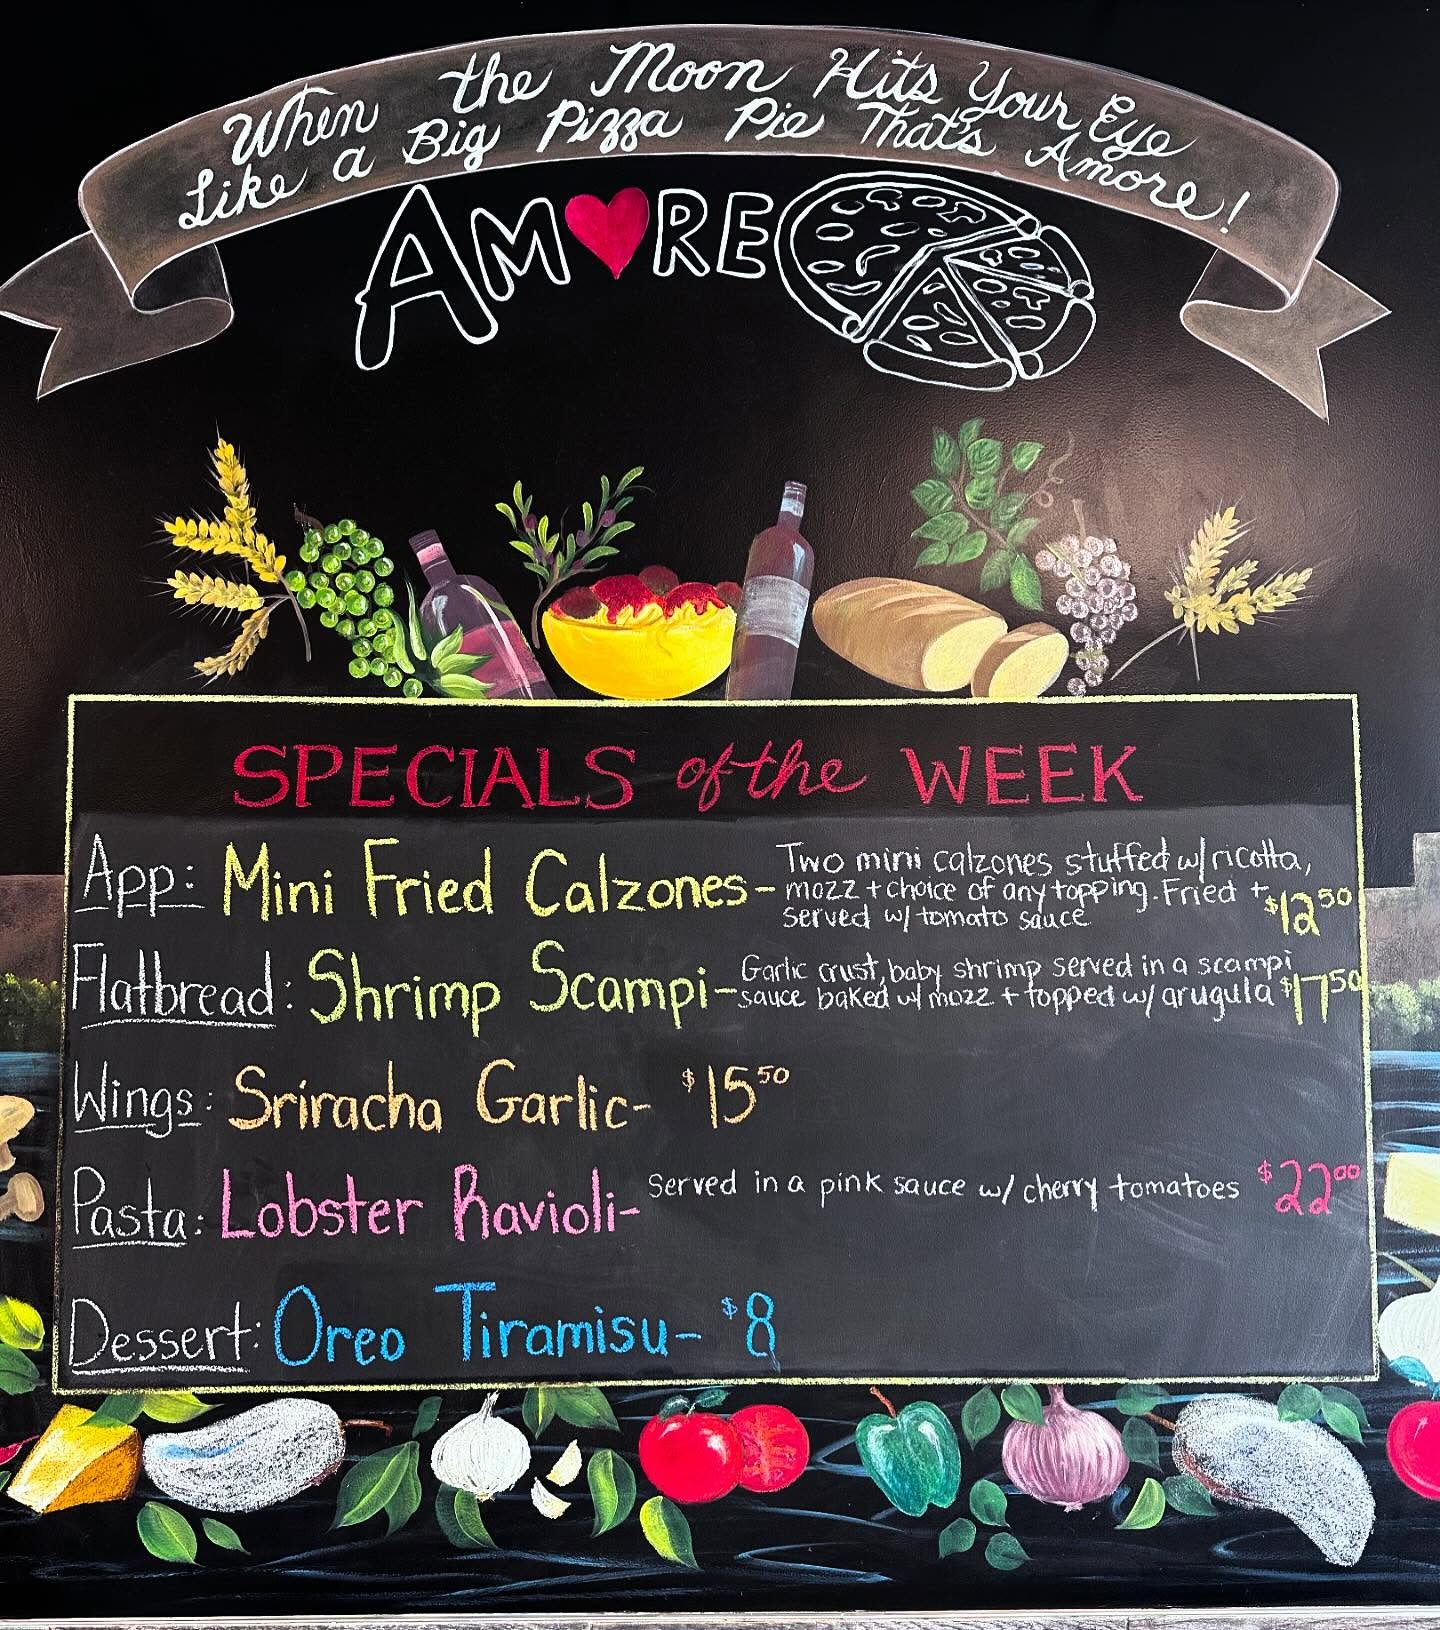 When the Moon Hits Your Eye
Like a Big Pizza Pie That's Amore!
AM♥RE
SPECIALS of the WEEK
App: Mini Fried Calzones- Two mini calzones stuffed w/ ricotta,
mozz + choice of any topping. Fried +
served w/ tomato sauce $12.50
Flatbread: Shrimp Scampi- Garlic crust, baby shrimp served in a scampi
sauce baked w/ mozz + topped w/ arugula $17.50
Wings: Sriracha Garlic- $15.50
Pasta: Lobster Ravioli- Served in a pink sauce w/ cherry tomatoes $22.00
Dessert: Oreo Tiramisu- $8